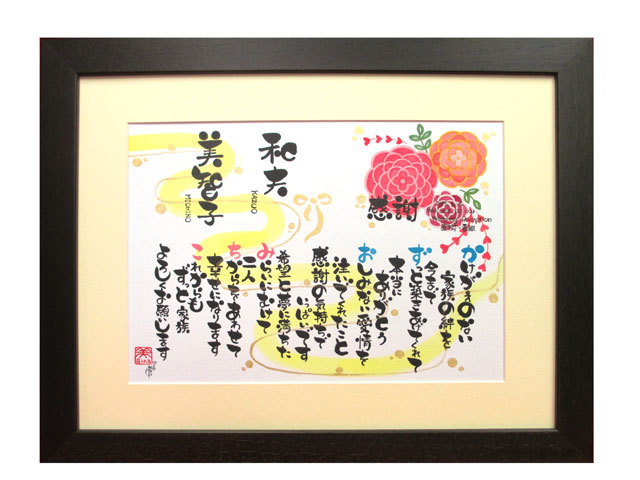 感謝
かけがえのない
家族の絆を
今まで
ずっと築きあげてくれて
本当に
ありがとう
おしみない愛情を
注いでくれたこと
感謝の気持ちで
いっぱいです
希望と夢に満ちた
みらいにむけて
二人
ちからをあわせて
幸せになります
これからも
ずっと家族
よろしくお願いします
和夫
KAZUO
美智子
MICHIKO
美